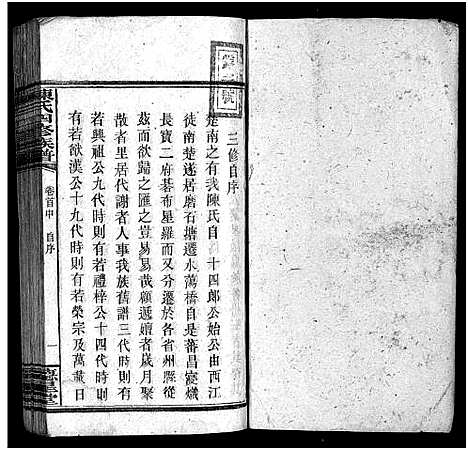 三修自序
楚南之有我陳氏自 十四郎公始公由西江
徒南楚遂居磨石塘遷水蕩橋自是蕃昌寖熾
長寶二府碁布星羅而又分遷於各省州縣從
茲而欲歸之匯之豈易易哉顧遞嬗者歲月聚
散者里居代謝者人事我族舊譜三代時則有
若興祖公九代時則有若禮梓公十四代時則
有若歆漢公十九代時則有若榮宗及萬載日
陳氏四修族譜
卷首中 自序 一